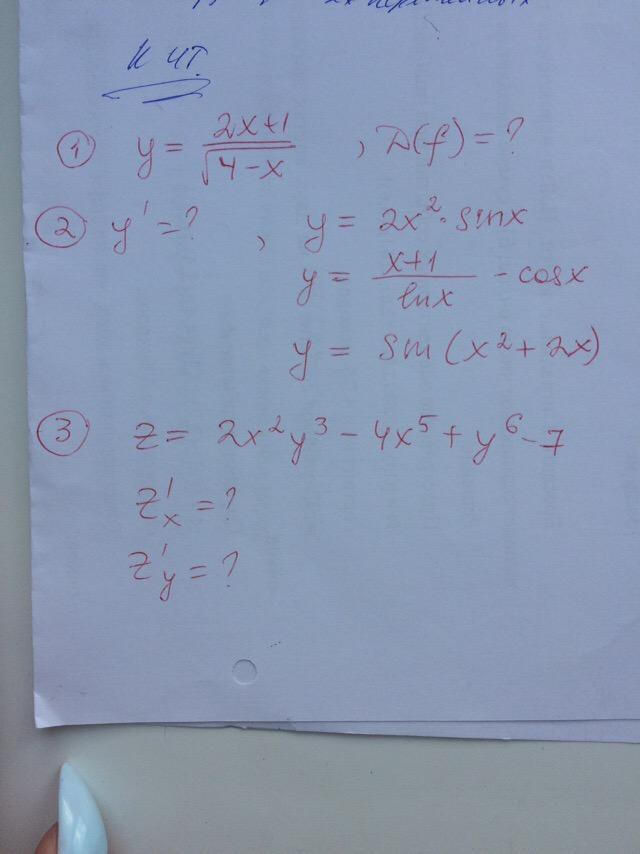 2х переменных
К ЧТ.
① y = 2x+1 / √4-x , D(f) = ?
② y' = ? , y = 2x² · sinx
y = x+1 / lnx - cosx
y = sin (x² + 2x)
③ z = 2x²y³ - 4x⁵ + y⁶ - 7
z'x = ?
z'y = ?